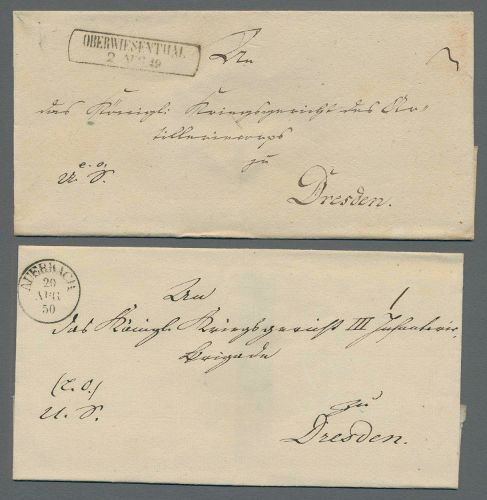 OBERWIESENTHAL
2 AUG 49
An
das Königl: Kriegsgericht des Ar-
tilleriecorps
zu
e. o.
U. S.
Dresden.
AUERBACH
20
AUG
50
An
das Königl: Kriegsgericht III Infanterie
brigade
(E. O.)
U. S.
zu
Dresden.